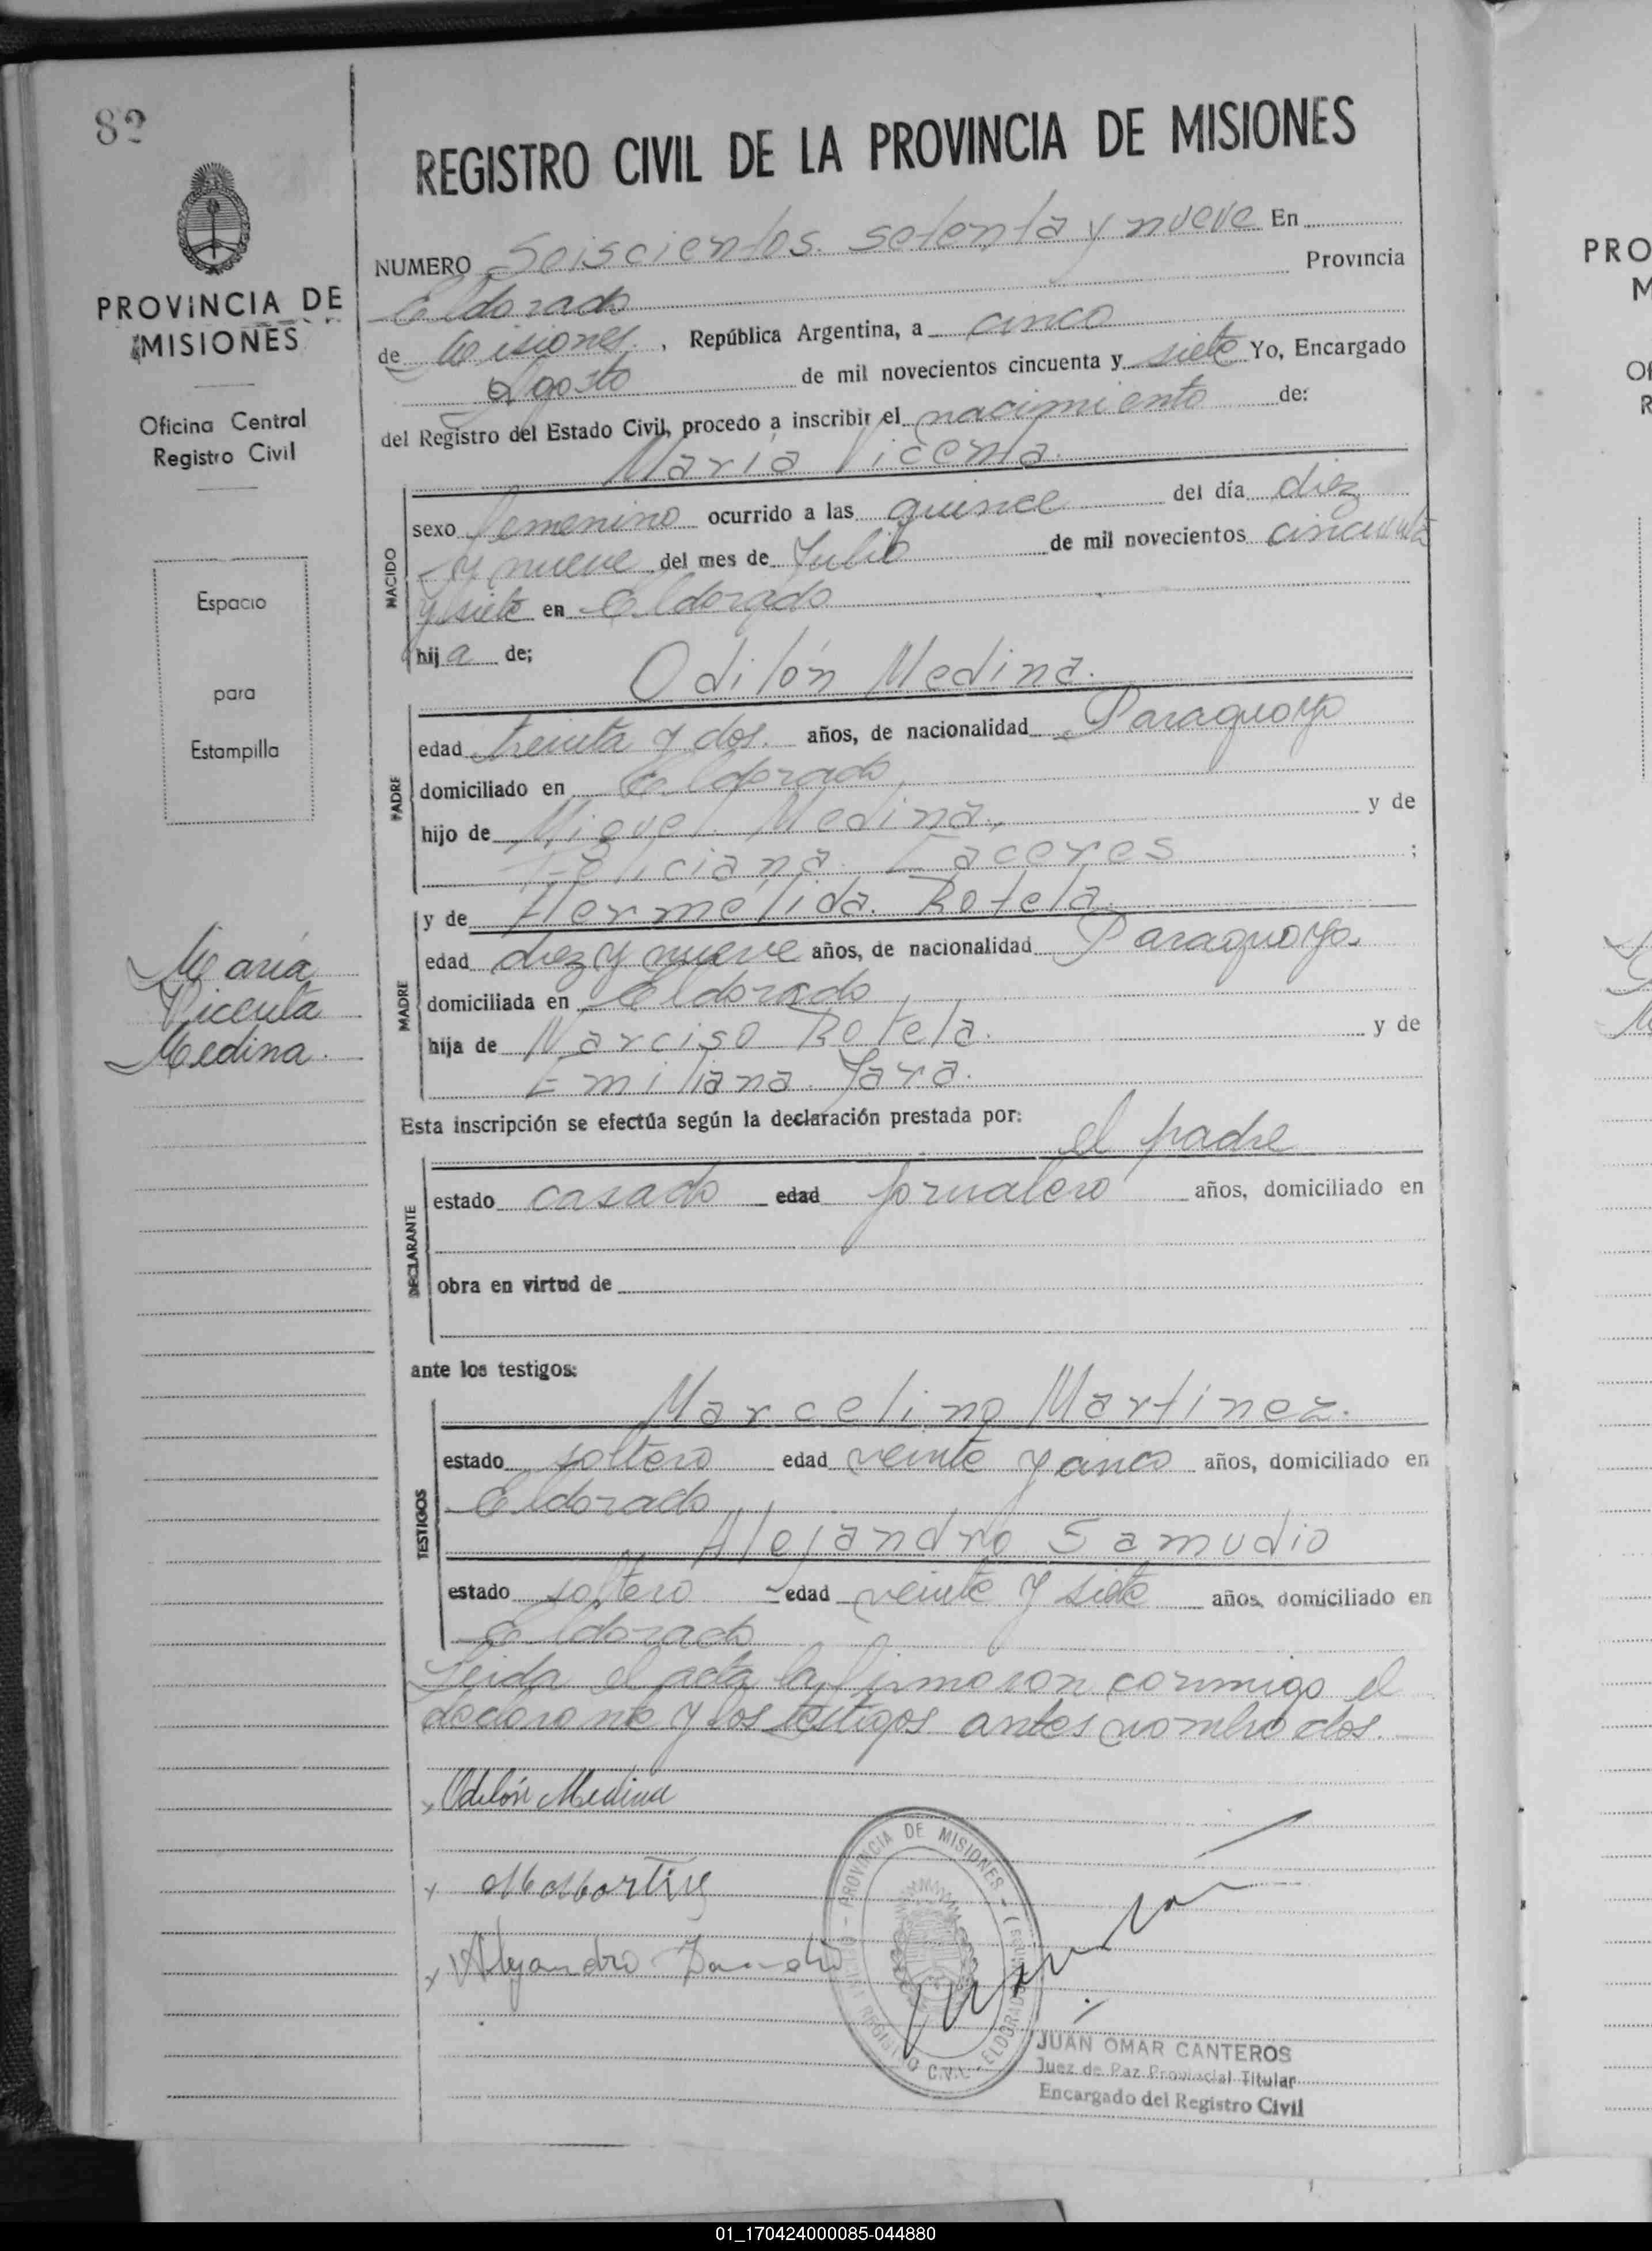 82
PROVINCIA DE
MISIONES
Oficina Central
Registro Civil
Espacio
para
Estampilla
María
Vicenta
Medina.
REGISTRO CIVIL DE LA PROVINCIA DE MISIONES
NUMERO Seiscientos setenta y nueve En
Eldorado Provincia
de Misiones, República Argentina, a cinco
Agosto de mil novecientos cincuenta y siete Yo, Encargado
del Registro del Estado Civil, procedo a inscribir el nacimiento de:
María Vicenta.
NACIDO
sexo femenino ocurrido a las quince del día diez
y nueve del mes de Julio de mil novecientos cincuenta
y siete en Eldorado
hija de;
Odilón Medina.
PADRE
edad treinta y dos. años, de nacionalidad Paraguayo
domiciliado en Eldorado
hijo de Miguel Medina, y de
Feliciana Caceres ;
y de Hermelida Rotela.
MADRE
edad diez y nueve años, de nacionalidad Paraguaya.
domiciliada en Eldorado
hija de Narciso Rotela. y de
Emiliana Jara.
Esta inscripción se efectúa según la declaración prestada por:
el padre
DECLARANTE
estado casado edad jornalero años, domiciliado en
obra en virtud de
ante los testigos:
Marcelino Martinez.
TESTIGOS
estado soltero edad veinte y cinco años, domiciliado en
Eldorado
Alejandro Samudio
estado soltero edad veinte y siete años, domiciliado en
Eldorado
Leida el acta la firmaron conmigo el
declarante y los testigos antes nombrados.
x Odilón Medina
x
x Alejandro
PROVINCIA DE MISIONES
REGISTRO CIVIL ELDORADO
JUAN OMAR CANTEROS
Juez de Paz Provincial Titular
Encargado del Registro Civil
PRO
M
Of
R
01_170424000085-044880